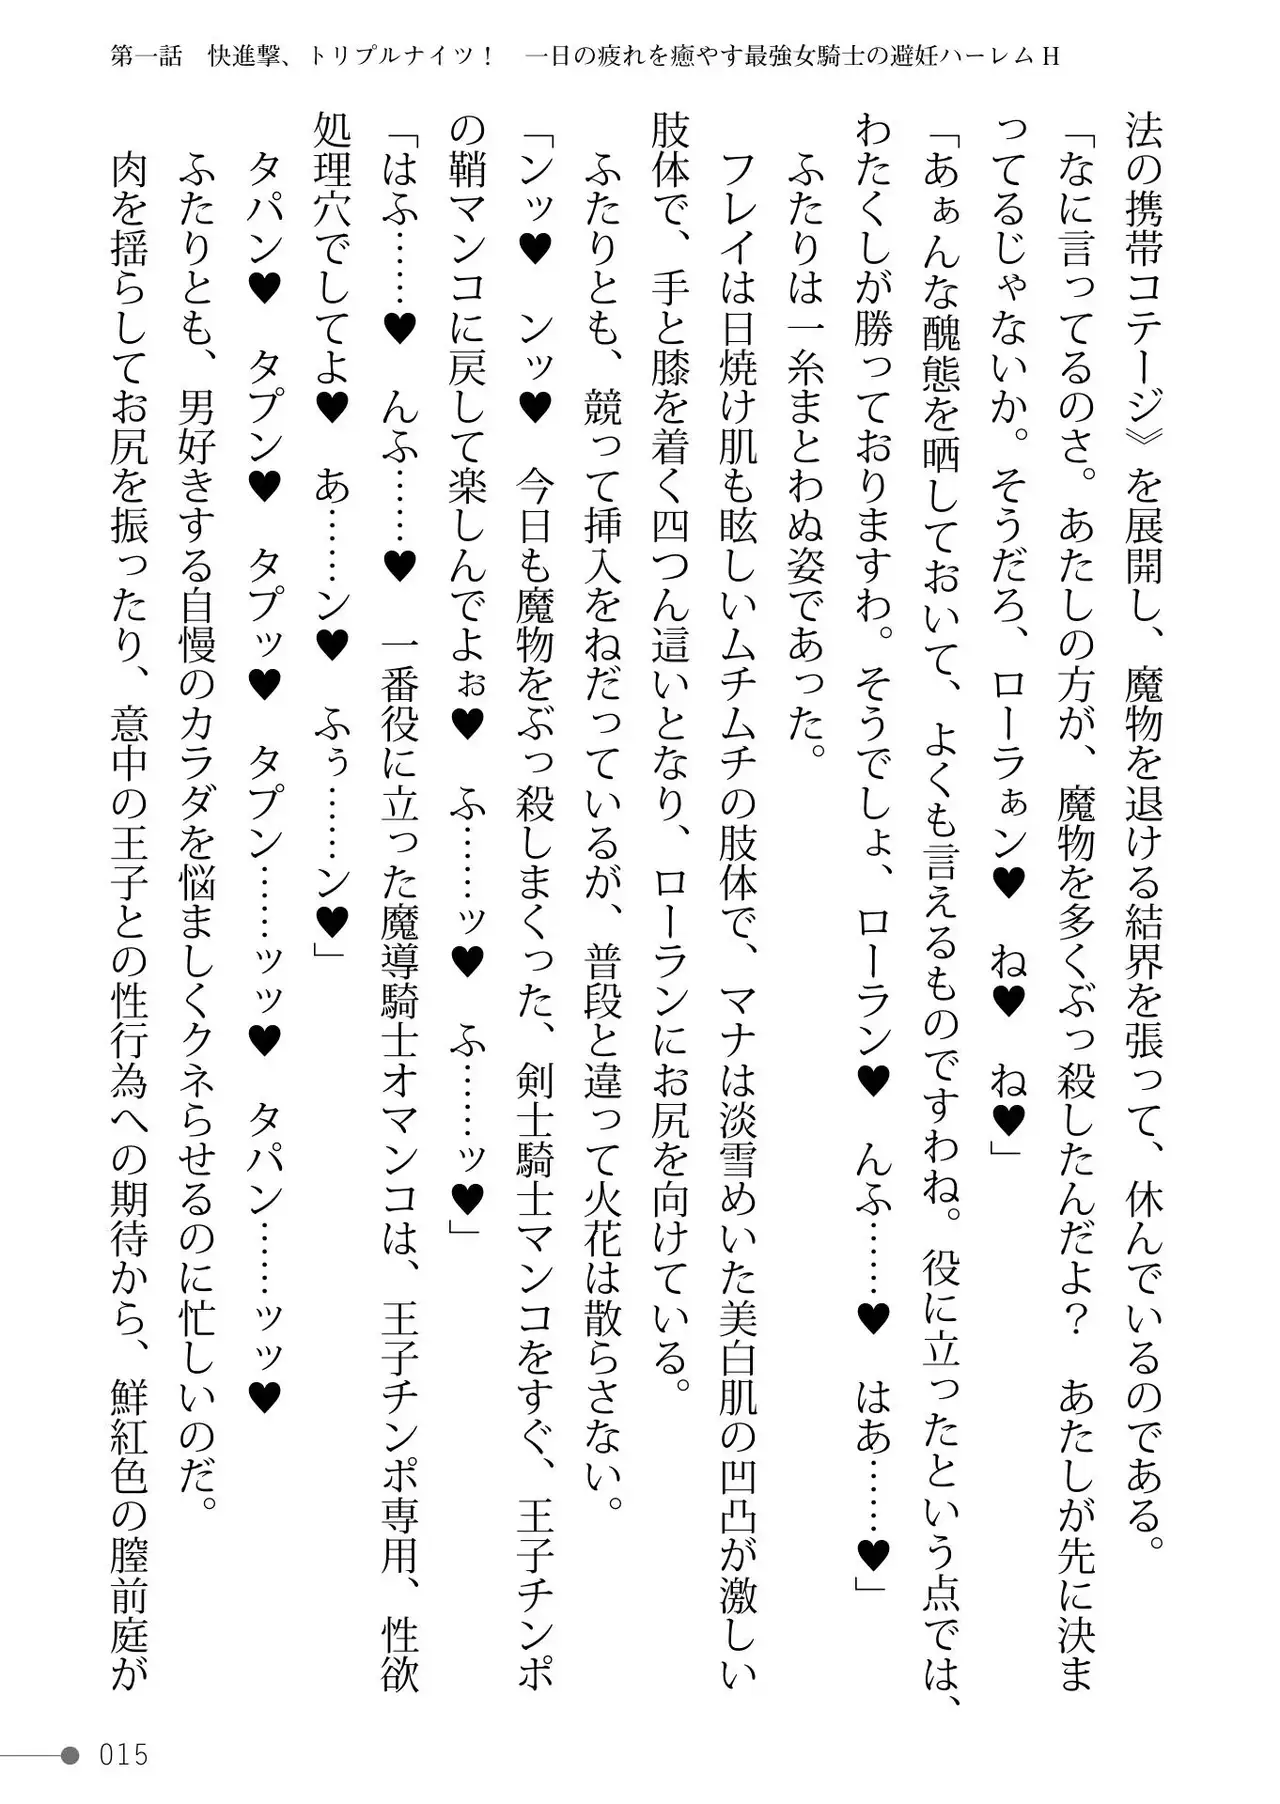 第一話　快進撃、トリプルナイツ！　一日の疲れを癒やす最強女騎士の避妊ハーレムH
法の携帯コテージ》を展開し、魔物を退ける結界を張って、休んでいるのである。
「なに言ってるのさ。あたしの方が、魔物を多くぶっ殺したんだよ？　あたしが先に決ま
ってるじゃないか。そうだろ、ローラぁン♥　ね♥　ね♥」
「あぁんな醜態を晒しておいて、よくも言えるものですわね。役に立ったという点では、
わたくしが勝っておりますわ。そうでしょ、ローラン♥　んふ……♥　はあ……♥」
　ふたりは一糸まとわぬ姿であった。
　フレイは日焼け肌も眩しいムチムチの肢体で、マナは淡雪めいた美白肌の凹凸が激しい
肢体で、手と膝を着く四つん這いとなり、ローランにお尻を向けている。
　ふたりとも、競って挿入をねだっているが、普段と違って火花は散らさない。
「ンッ♥　ンッ♥　今日も魔物をぶっ殺しまくった、剣士騎士マンコをすぐ、王子チンポ
の鞘マンコに戻して楽しんでよぉ♥　ふ……ッ♥　ふ……ッ♥」
「はふ……♥　んふ……♥　一番役に立った魔導騎士オマンコは、王子チンポ専用、性欲
処理穴でしてよ♥　あ……ン♥　ふぅ……ン♥」
　タパン♥　タプン♥　タプッ♥　タプン……ッッ♥　タパン……ッッ♥
　ふたりとも、男好きする自慢のカラダを悩ましくクネらせるのに忙しいのだ。
　肉を揺らしてお尻を振ったり、意中の王子との性行為への期待から、鮮紅色の膣前庭が
015